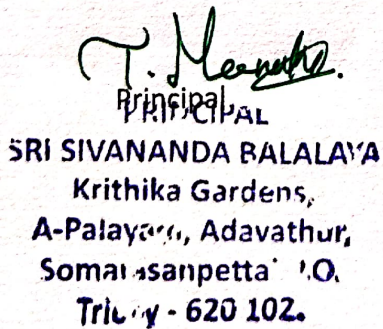 T. Meenak
Principal
PRINCIPAL
SRI SIVANANDA BALALAYA
Krithika Gardens,
A-Palayam, Adavathur,
Somarasanpettai P.O.
Trichy - 620 102.